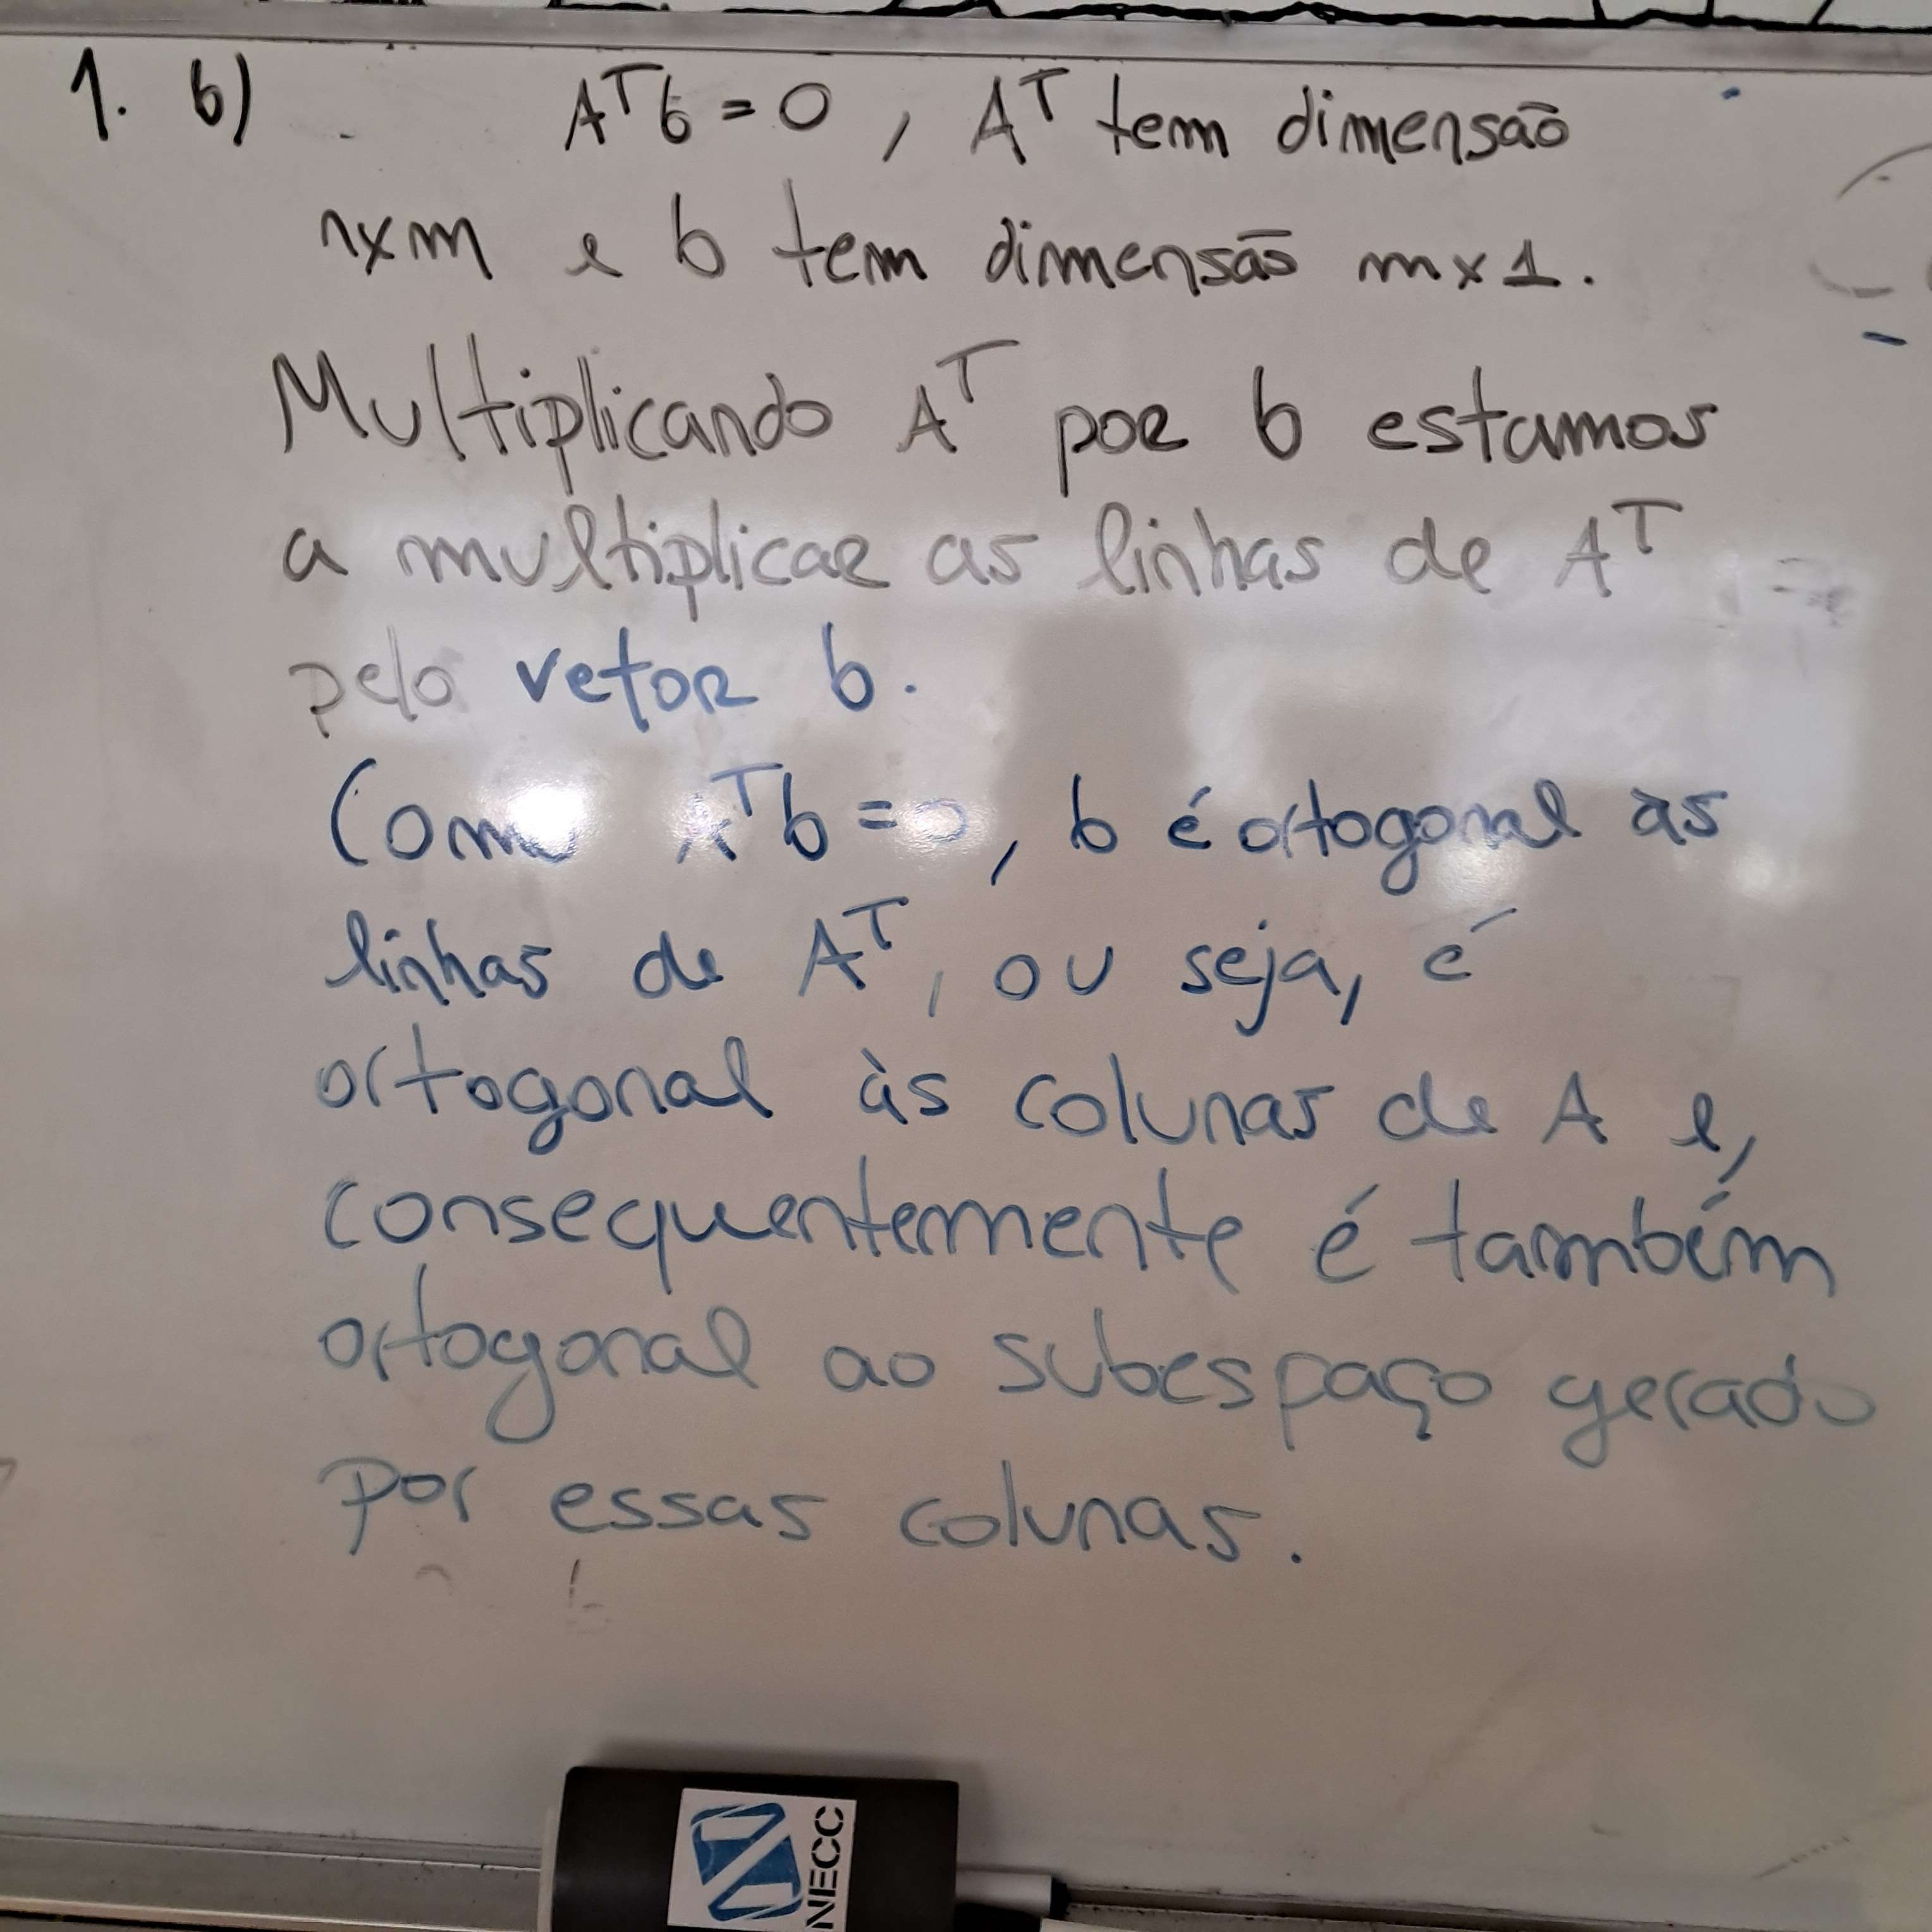 1. b) Aᵀb = 0, Aᵀ tem dimensão
nxm e b tem dimensão mx1.
Multiplicando Aᵀ por b estamos
a multiplicar as linhas de Aᵀ
pelo vetor b.
Como Aᵀb = 0, b é ortogonal às
linhas de Aᵀ, ou seja, é
ortogonal às colunas de A e,
consequentemente é também
ortogonal ao subespaço gerado
por essas colunas.
NECC